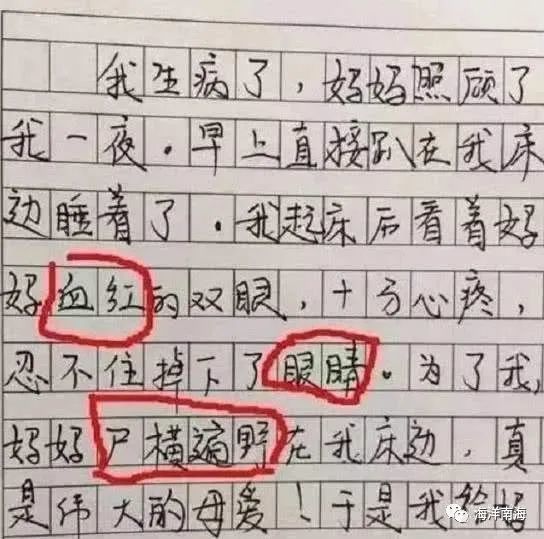 我生病了，妈妈照顾了
我一夜．早上直接趴在我床
边睡着了．我起床后看着妈
妈血红的双眼，十分心疼，
忍不住掉下了眼睛。为了我，
妈妈尸横遍野在我床边，真
是伟大的母爱！于是我给妈
海洋南海